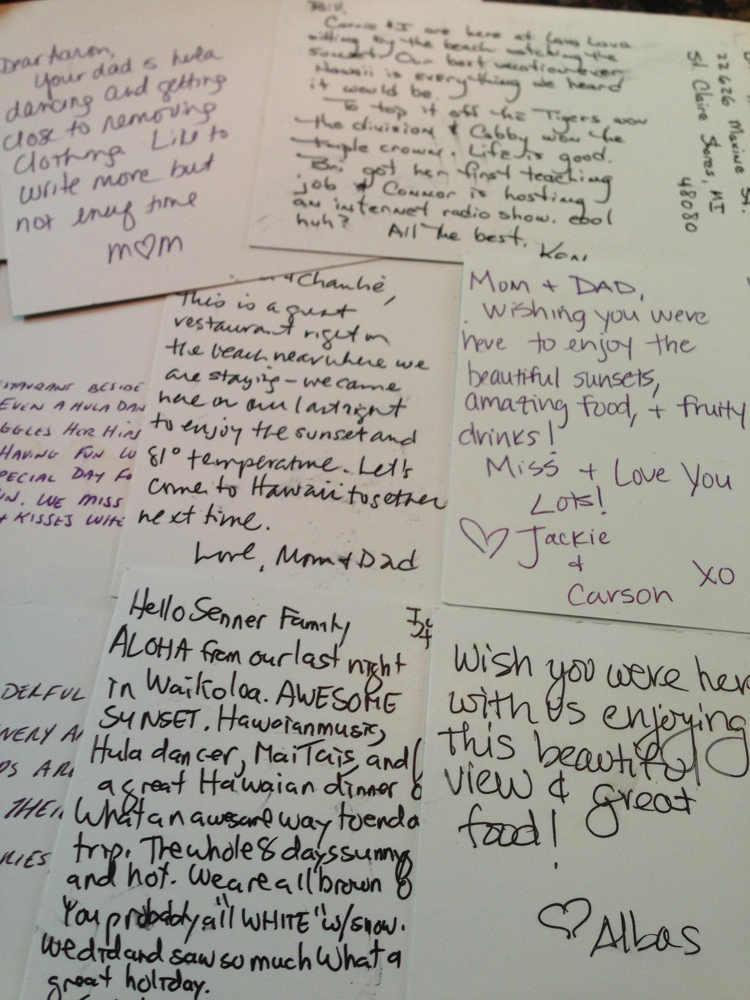 Dear Aaron,
Your dad is hula
dancing and getting
close to removing
clothing. Like to
write more but
not enuf time
m♡m
Bill,
Carrie & I are here at Lava Lava
sitting by the beach watching the
sunset. Our best vacation ever.
Hawaii is everything we heard
it would be.
To top it off the Tigers won
the division & Cabby won the
triple crown. Life is good.
Bri got her first teaching
job & Connor is hosting
an internet radio show. cool
huh?
All the best.
22626 Maxine St.
St. Claire Shores, MI
48080
+ Charlie,
This is a great
restaurant right on
the beach near where we
are staying - we came
here on our last night
to enjoy the sunset and
81° temperature. Let's
come to Hawaii together
next time.
Love, Mom + Dad
Mom + DAD,
Wishing you were
here to enjoy the
beautiful sunsets,
amazing food, + fruity
drinks!
Miss + Love You
Lots!
♡ Jackie
+
Carson XO
STAURANT BESIDE
EVEN A HULA DAN
GGLES HER HIPS
HAVING FUN W
PECIAL DAY FO
IN. WE MISS
+ KISSES WHE
Hello Senner Family
ALOHA from our last night
in Waikoloa. AWESOME
SUNSET. Hawaian music,
Hula dancer, MaiTais, and
a great Hawaian dinner
What an awesome way to end a
trip. The whole 8 days sunny
and hot. We are all brown &
You probably all "WHITE" w/snow.
We did and saw so much What a
great holiday.
Wish you were her
with us enjoying
this beautiful
view & great
food!
♡ Albas
DERFUL
NERY A
DS AR
THEI
RIES